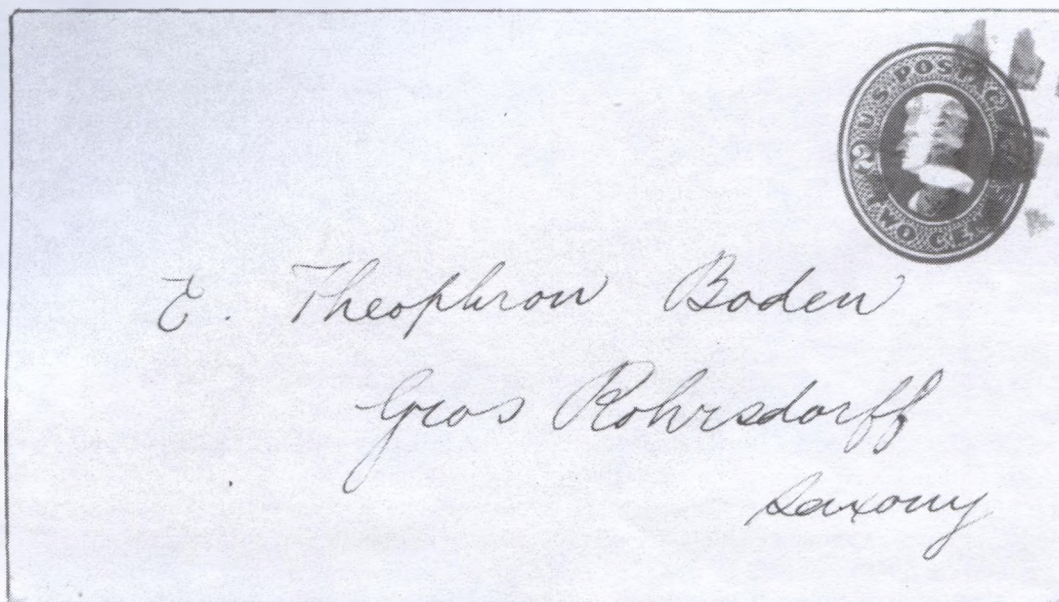 U.S. POSTAGE
2
TWO CENTS
E. Theophron Boden
Gros Rohrsdorff
Saxony